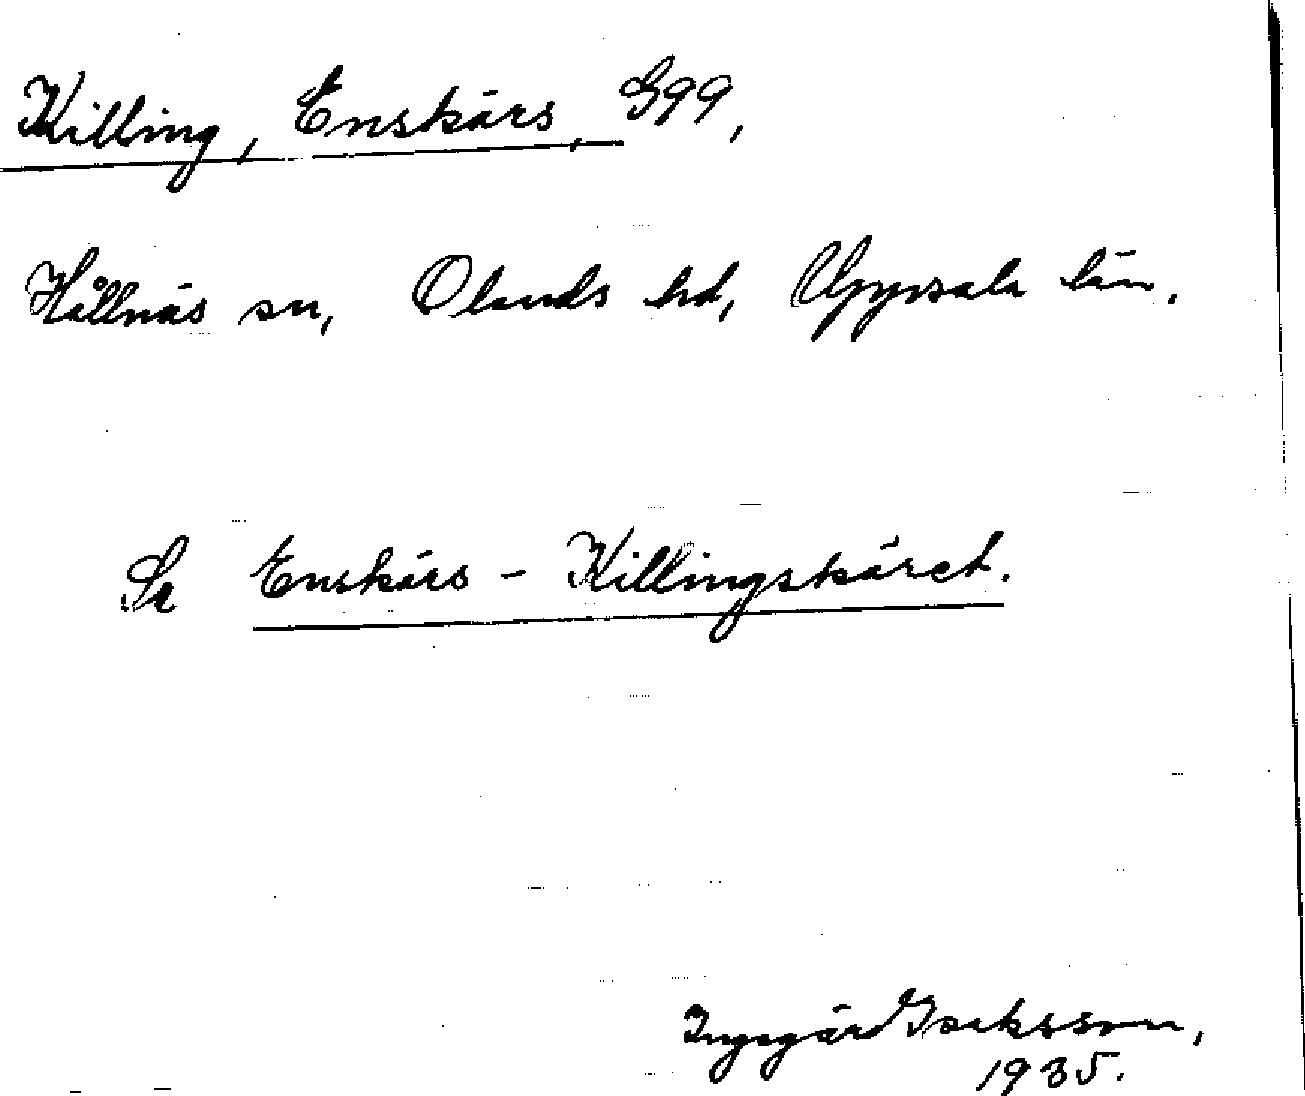 Killing, Enskärs, G99,
Hållnäs sn, Olands hd, Uppsala län.
Se Enskärs - Killingskäret.
Ingegärd Isaksson,
1935.